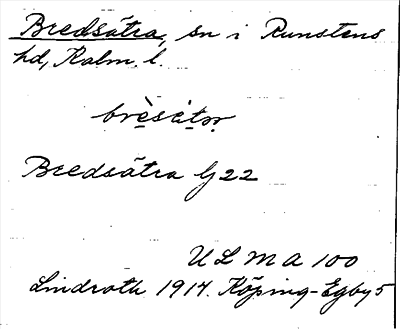 Bredsätra, sn i Runstens
hd, Kalm. l.
brèsä̀tɒr
Bredsätra G 22
ULMA 100
Lindroth 1914. Köping-Egby 5